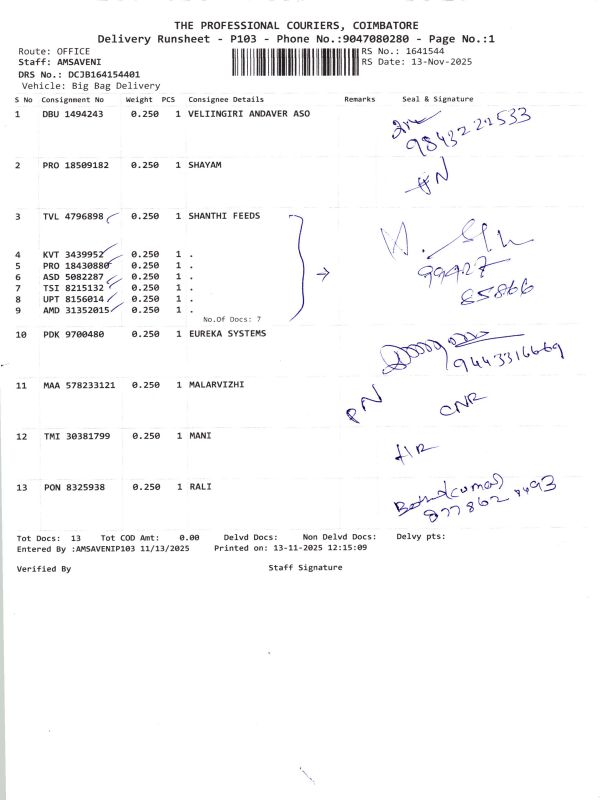 THE PROFESSIONAL COURIERS, COIMBATORE
Delivery Runsheet - P103 - Phone No.:9047080280 - Page No.:1
Route: OFFICE RS No.: 1641544
Staff: AMSAVENI RS Date: 13-Nov-2025
DRS No.: DCJB164154401
Vehicle: Big Bag Delivery
S No Consignment No Weight PCS Consignee Details Remarks Seal & Signature
1 DBU 1494243 0.250 1 VELIINGIRI ANDAVER ASO
2 PRO 18509182 0.250 1 SHAYAM
3 TVL 4796898 0.250 1 SHANTHI FEEDS
4 KVT 3439952 0.250 1 .
5 PRO 18430880 0.250 1 .
99427
6 ASD 5082287 0.250 1 .
7 TSI 8215132 0.250 1 .
85866
8 UPT 8156014 0.250 1 .
9 AMD 31352015 0.250 1 .
No.Of Docs: 7
10 PDK 9700480 0.250 1 EUREKA SYSTEMS
9443316669
11 MAA 578233121 0.250 1 MALARVIZHI
PN CNR
12 TMI 30381799 0.250 1 MANI
13 PON 8325938 0.250 1 RALI
Tot Docs: 13 Tot COD Amt: 0.00 Delvd Docs: Non Delvd Docs: Delvy pts:
Entered By :AMSAVENIP103 11/13/2025 Printed on: 13-11-2025 12:15:09
Verified By Staff Signature